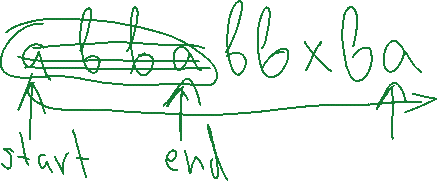 abbabbxba
start end